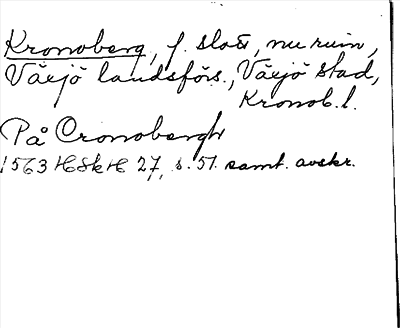 Kronoberg, f. slott, nu ruin,
Växjö landsförs., Växjö stad,
Kronob. l.
På Cronobergh
1563 HSkH 27, s. 51. samt. avskr.